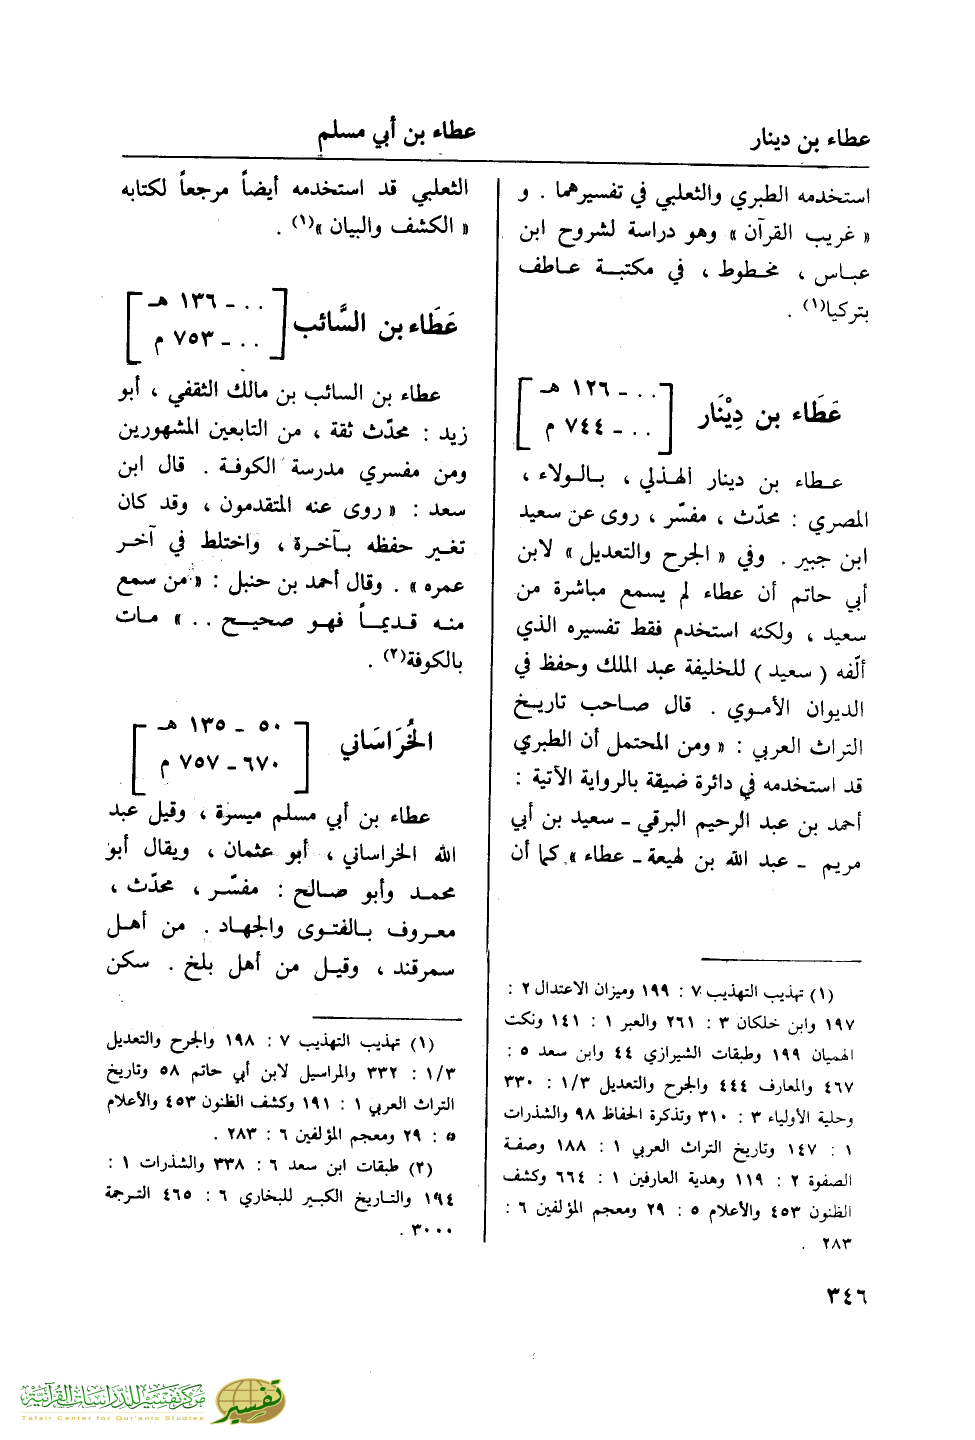 عطاء بن دينار
عطاء بن أبي مسلم
استخدمه الطبري والثعلبي في تفسيرهما . و
« غريب القرآن » وهو دراسة لشروح ابن
عباس ، مخطوط ، في مكتبة عاطف
بتركيا(١) .
عَطَاء بن دِيْنَار
[ . . ـ ١٢٦ هـ
. . ـ ٧٤٤ م ]
عطاء بن دينار الهذلي ، بالولاء ،
المصري : محدّث ، مفسّر ، روى عن سعيد
ابن جبير . وفي « الجرح والتعديل » لابن
أبي حاتم أن عطاء لم يسمع مباشرة من
سعيد ، ولكنه استخدم فقط تفسيره الذي
ألّفه ( سعيد ) للخليفة عبد الملك وحفظ في
الديوان الأموي . قال صاحب تاريخ
التراث العربي : « ومن المحتمل أن الطبري
قد استخدمه في دائرة ضيقة بالرواية الآتية :
أحمد بن عبد الرحيم البرقي ـ سعيد بن أبي
مريم ـ عبد الله بن لهيعة ـ عطاء » كما أن
(١) تهذيب التهذيب ٧ : ١٩٩ وميزان الاعتدال ٢ :
١٩٧ وابن خلكان ٣ : ٢٦١ والعبر ١ : ١٤١ ونكت
الهميان ١٩٩ وطبقات الشيرازي ٤٤ وابن سعد ٥ :
٤٦٧ والمعارف ٤٤٤ والجرح والتعديل ١/٣ : ٣٣٠
وحلية الأولياء ٣ : ٣١٠ وتذكرة الحفاظ ٩٨ والشذرات
١ : ١٤٧ وتاريخ التراث العربي ١ : ١٨٨ وصفة
الصفوة ٢ : ١١٩ وهدية العارفين ١ : ٦٦٤ وكشف
الظنون ٤٥٣ والأعلام ٥ : ٢٩ ومعجم المؤلفين ٦ :
٢٨٣ .
الثعلبي قد استخدمه أيضاً مرجعاً لكتابه
« الكشف والبيان »(١) .
عَطَاء بن السَّائب
[ . . ـ ١٣٦ هـ
. . ـ ٧٥٣ م ]
عطاء بن السائب بن مالك الثقفي ، أبو
زيد : محدّث ثقة ، من التابعين المشهورين
ومن مفسري مدرسة الكوفة . قال ابن
سعد : « روى عنه المتقدمون ، وقد كان
تغير حفظه بآخرة ، واختلط في آخر
عمره » . وقال أحمد بن حنبل : « من سمع
منه قديماً فهو صحيح . . » مات
بالكوفة(٢) .
الخُرَاسَاني
[ ٥٠ ـ ١٣٥ هـ
٦٧٠ ـ ٧٥٧ م ]
عطاء بن أبي مسلم ميسرة ، وقيل عبد
الله الخراساني ، أبو عثمان ، ويقال أبو
محمد وأبو صالح : مفسّر ، محدّث ،
معروف بالفتوى والجهاد . من أهل
سمرقند ، وقيل من أهل بلخ . سكن
(١) تهذيب التهذيب ٧ : ١٩٨ والجرح والتعديل
١/٣ : ٣٣٢ والمراسيل لابن أبي حاتم ٥٨ وتاريخ
التراث العربي ١ : ١٩١ وكشف الظنون ٤٥٣ والأعلام
٥ : ٢٩ ومعجم المؤلفين ٦ : ٢٨٣ .
(٢) طبقات ابن سعد ٦ : ٣٣٨ والشذرات ١ :
١٩٤ والتاريخ الكبير للبخاري ٦ : ٤٦٥ الترجمة
٣٠٠٠ .
٣٤٦
مركز تفسير للدراسات القرآنية
Tafsir Center for Qur'anic Studies
تفسير